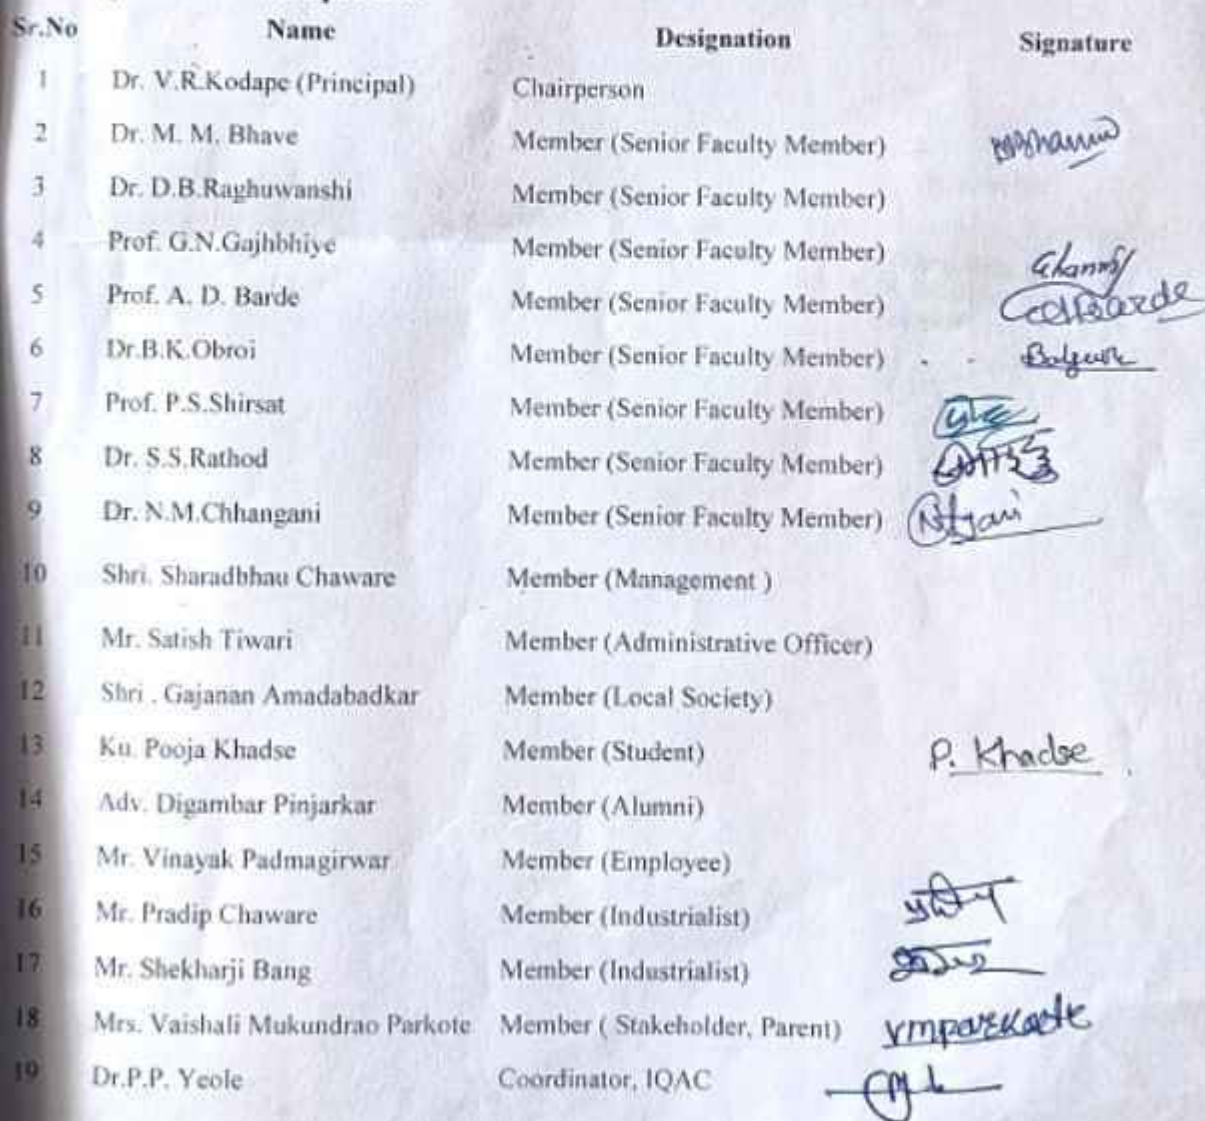 Sr.No Name Designation Signature
1 Dr. V.R.Kodape (Principal) Chairperson
2 Dr. M. M. Bhave Member (Senior Faculty Member)
3 Dr. D.B.Raghuwanshi Member (Senior Faculty Member)
4 Prof. G.N.Gajhbhiye Member (Senior Faculty Member)
5 Prof. A. D. Barde Member (Senior Faculty Member)
6 Dr.B.K.Obroi Member (Senior Faculty Member)
7 Prof. P.S.Shirsat Member (Senior Faculty Member)
8 Dr. S.S.Rathod Member (Senior Faculty Member)
9 Dr. N.M.Chhangani Member (Senior Faculty Member)
10 Shri. Sharadbhau Chaware Member (Management )
11 Mr. Satish Tiwari Member (Administrative Officer)
12 Shri . Gajanan Amadabadkar Member (Local Society)
13 Ku. Pooja Khadse Member (Student) P. Khadse
14 Adv. Digambar Pinjarkar Member (Alumni)
15 Mr. Vinayak Padmagirwar Member (Employee)
16 Mr. Pradip Chaware Member (Industrialist)
17 Mr. Shekharji Bang Member (Industrialist)
18 Mrs. Vaishali Mukundrao Parkote Member ( Stakeholder, Parent)
19 Dr.P.P. Yeole Coordinator, IQAC